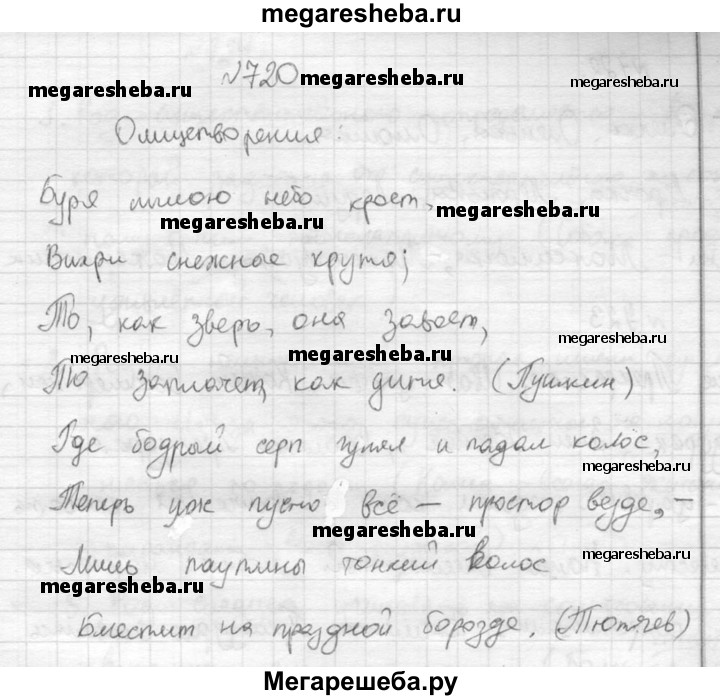 megaresheba.ru
№720 megaresheba.ru
megaresheba.ru
megaresheba.ru
Олицетворения:
Буря мглою небо кроет,
megaresheba.ru
megaresheba.ru
Вихри снежные крутя;
То, как зверь, она завоет,
megaresheba.ru
megaresheba.ru
megaresheba.ru
То заплачет, как дитя. (Пушкин)
Где бодрый серп гулял и падал колос,
megaresheba.ru
Теперь уж пусто всё – простор везде, –
megaresheba.ru
megaresheba.ru
Лишь паутины тонкий волос
megaresheba.ru
Блестит на праздной борозде. (Тютчев)
Мегарешеба.ру